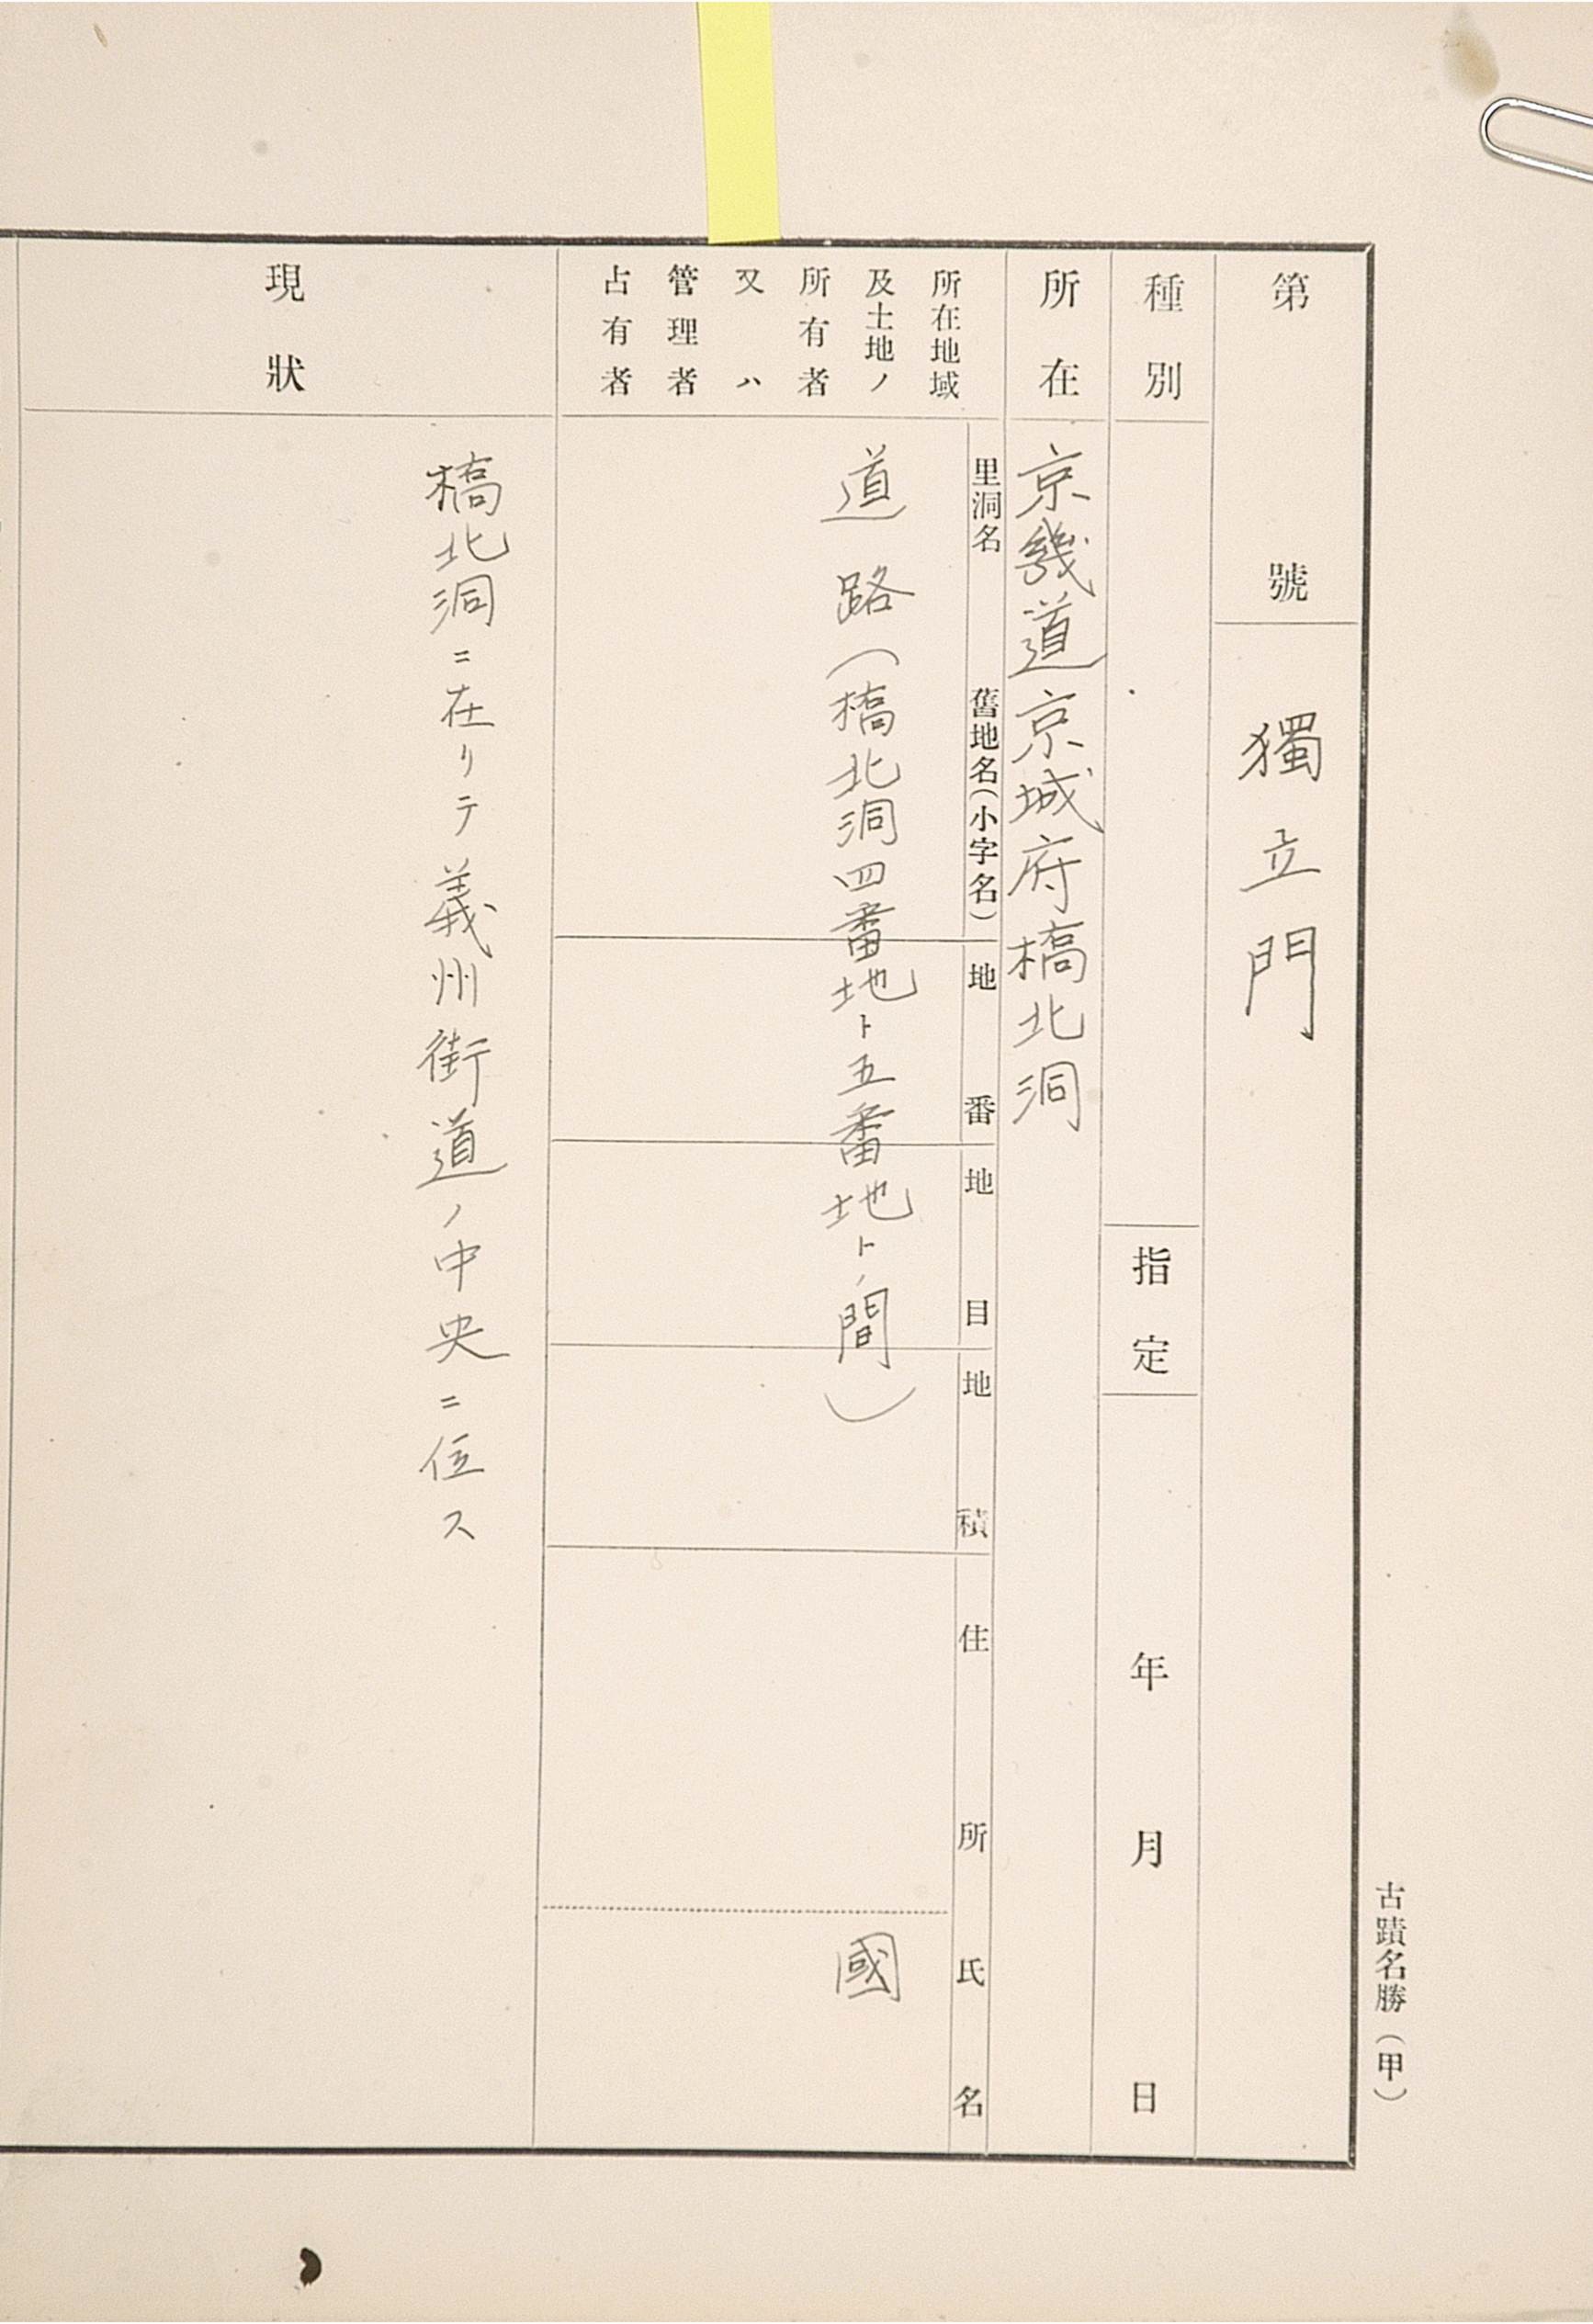 古蹟名勝（甲）
第 號 獨立門
種別 指定 年 月 日
所在 京畿道京城府橋北洞
所在地域
及土地ノ
所有者
又ハ
管理者
占有者
里洞名 舊地名（小字名） 地番 地目 地積 住所 氏名
道路（橋北洞四番地ト五番地トノ間） 國
現狀
橋北洞ニ在リテ義州街道ノ中央ニ位ス